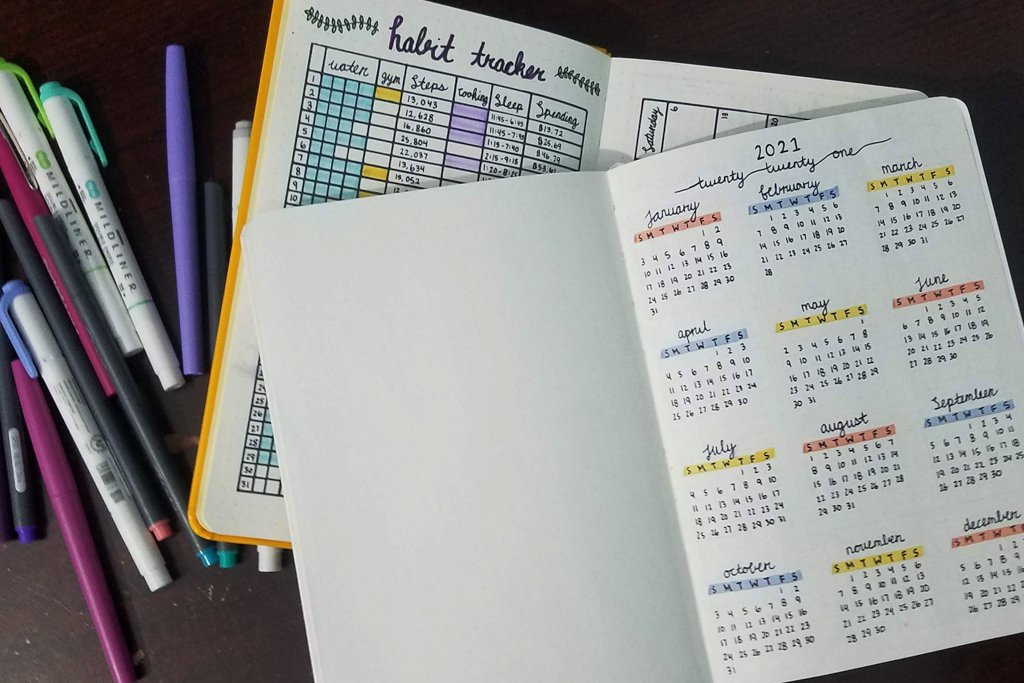 MILDLINER
MILDLINER
habit tracker
water gym Steps cooking Sleep Spending
1 13,043 11:45-6:45 $13.72
2 12,628 11:45-7:45 $25.69
3 16,860 1:15-7:40
4 25,804 2:15-9:15
5 22,037
6 13,634
7 15,052
8
9
10
24
25
26
27
28
29
30
31
Saturday
6
13
20
2021
twenty twenty one
january
S M T W T F S
1 2
3 4 5 6 7 8 9
10 11 12 13 14 15 16
17 18 19 20 21 22 23
24 25 26 27 28 29 30
31
february
S M T W T F S
1 2 3 4 5 6
7 8 9 10 11 12 13
14 15 16 17 18 19 20
21 22 23 24 25 26 27
28
march
S M T W T F S
1 2 3 4 5 6
7 8 9 10 11 12 13
14 15 16 17 18 19 20
21 22 23 24 25 26 27
28 29 30 31
april
S M T W T F S
1 2 3
4 5 6 7 8 9 10
11 12 13 14 15 16 17
18 19 20 21 22 23 24
25 26 27 28 29 30
may
S M T W T F S
1
2 3 4 5 6 7 8
9 10 11 12 13 14 15
16 17 18 19 20 21 22
23 24 25 26 27 28 29
30 31
june
S M T W T F S
1 2 3 4 5
6 7 8 9 10 11 12
13 14 15 16 17 18 19
20 21 22 23 24 25 26
27 28 29 30
july
S M T W T F S
1 2 3
4 5 6 7 8 9 10
11 12 13 14 15 16 17
18 19 20 21 22 23 24
25 26 27 28 29 30 31
august
S M T W T F S
1 2 3 4 5 6 7
8 9 10 11 12 13 14
15 16 17 18 19 20 21
22 23 24 25 26 27 28
29 30 31
September
S M T W T F S
1 2 3 4
5 6 7 8 9 10 11
12 13 14 15 16 17 18
19 20 21 22 23 24 25
26 27 28 29 30
october
S M T W T F S
1 2
3 4 5 6 7 8 9
10 11 12 13 14 15 16
17 18 19 20 21 22 23
24 25 26 27 28 29 30
31
november
S M T W T F S
1 2 3 4 5 6
7 8 9 10 11 12 13
14 15 16 17 18 19 20
21 22 23 24 25 26 27
28 29 30
december
S M T W T F
1 2
5 6 7 8 9
12 13 14 15
19 20 21 22
26 27 28 29